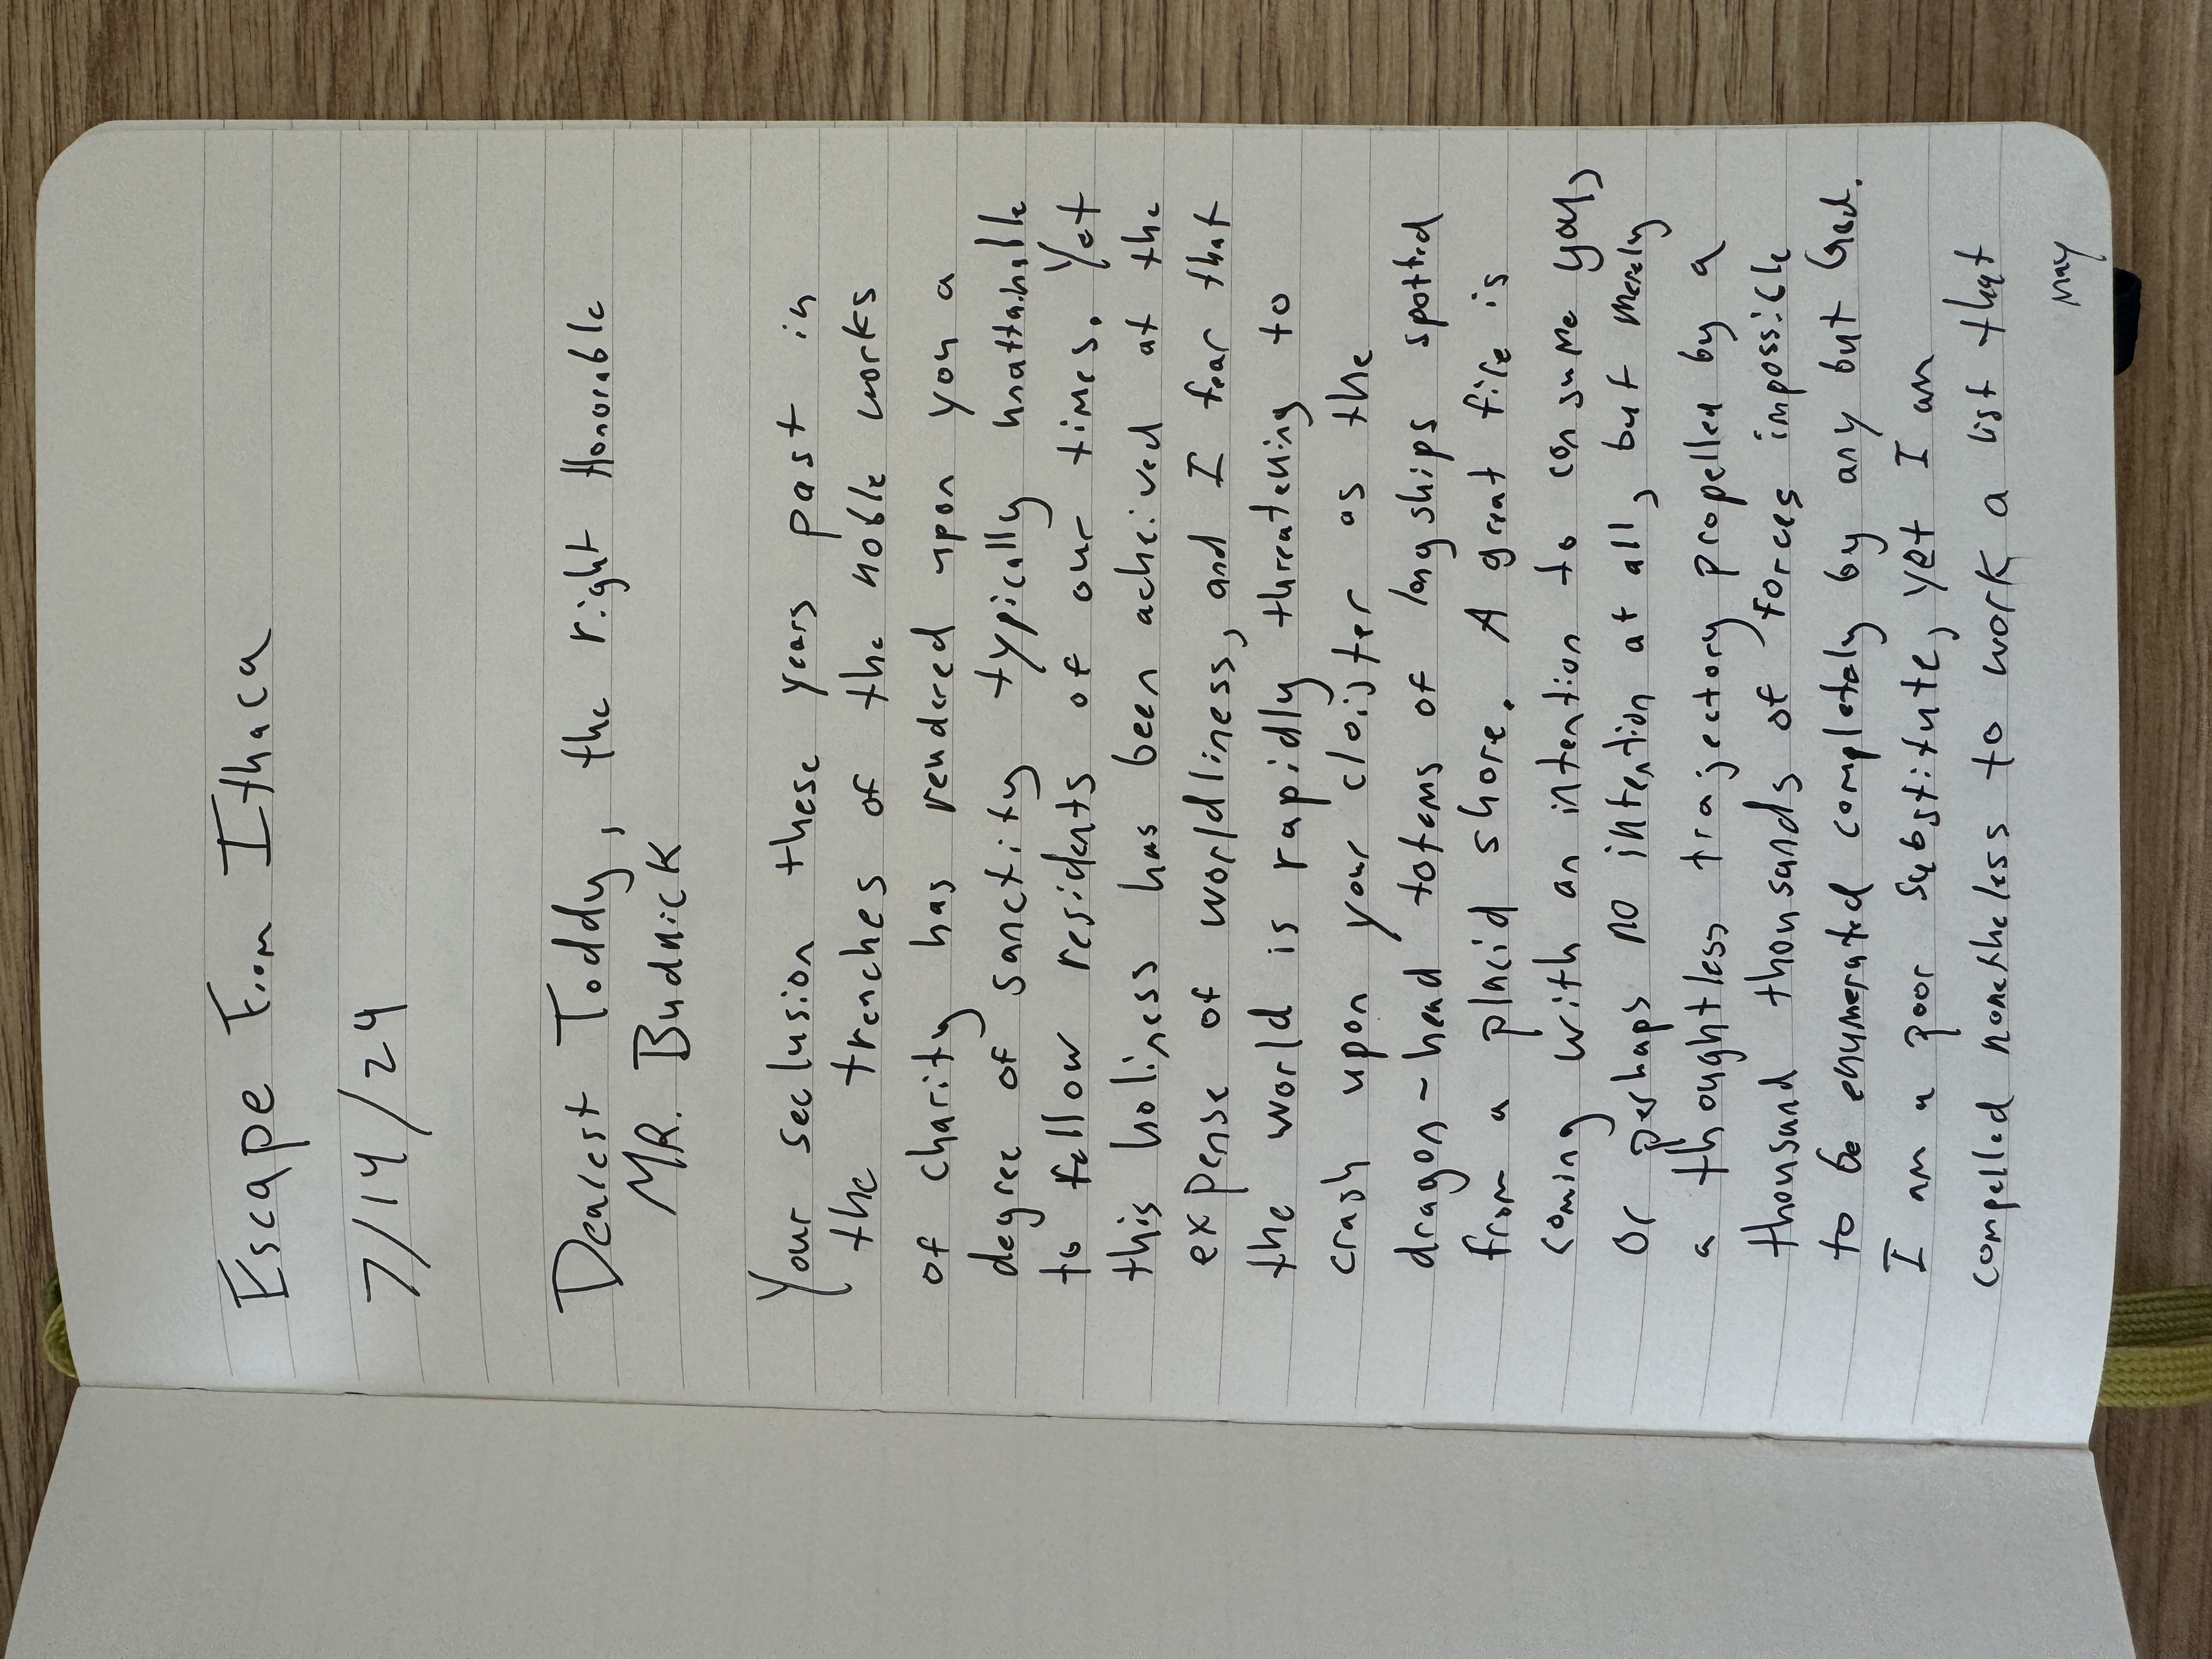 Escape From Ithaca
7/14/24
Dearest Toddy, the right Honorable
MR. Budnick
Your seclusion these years past in
the trenches of the noble works
of charity has rendered upon you a
degree of sanctity typically unattainable
to fellow residents of our times. Yet
this holiness has been acheived at the
expense of worldliness, and I fear that
the world is rapidly threatening to
crash upon your cloister as the
dragon-head totems of longships spotted
from a placid shore. A great fire is
coming with an intention to consume you,
or perhaps no intention at all, but merely
a thoughtless trajectory propelled by a
thousand thousands of forces impossible
to be enumerated completely by any but God.
I am a poor substitute, yet I am
compelled nonetheless to work a list that
may